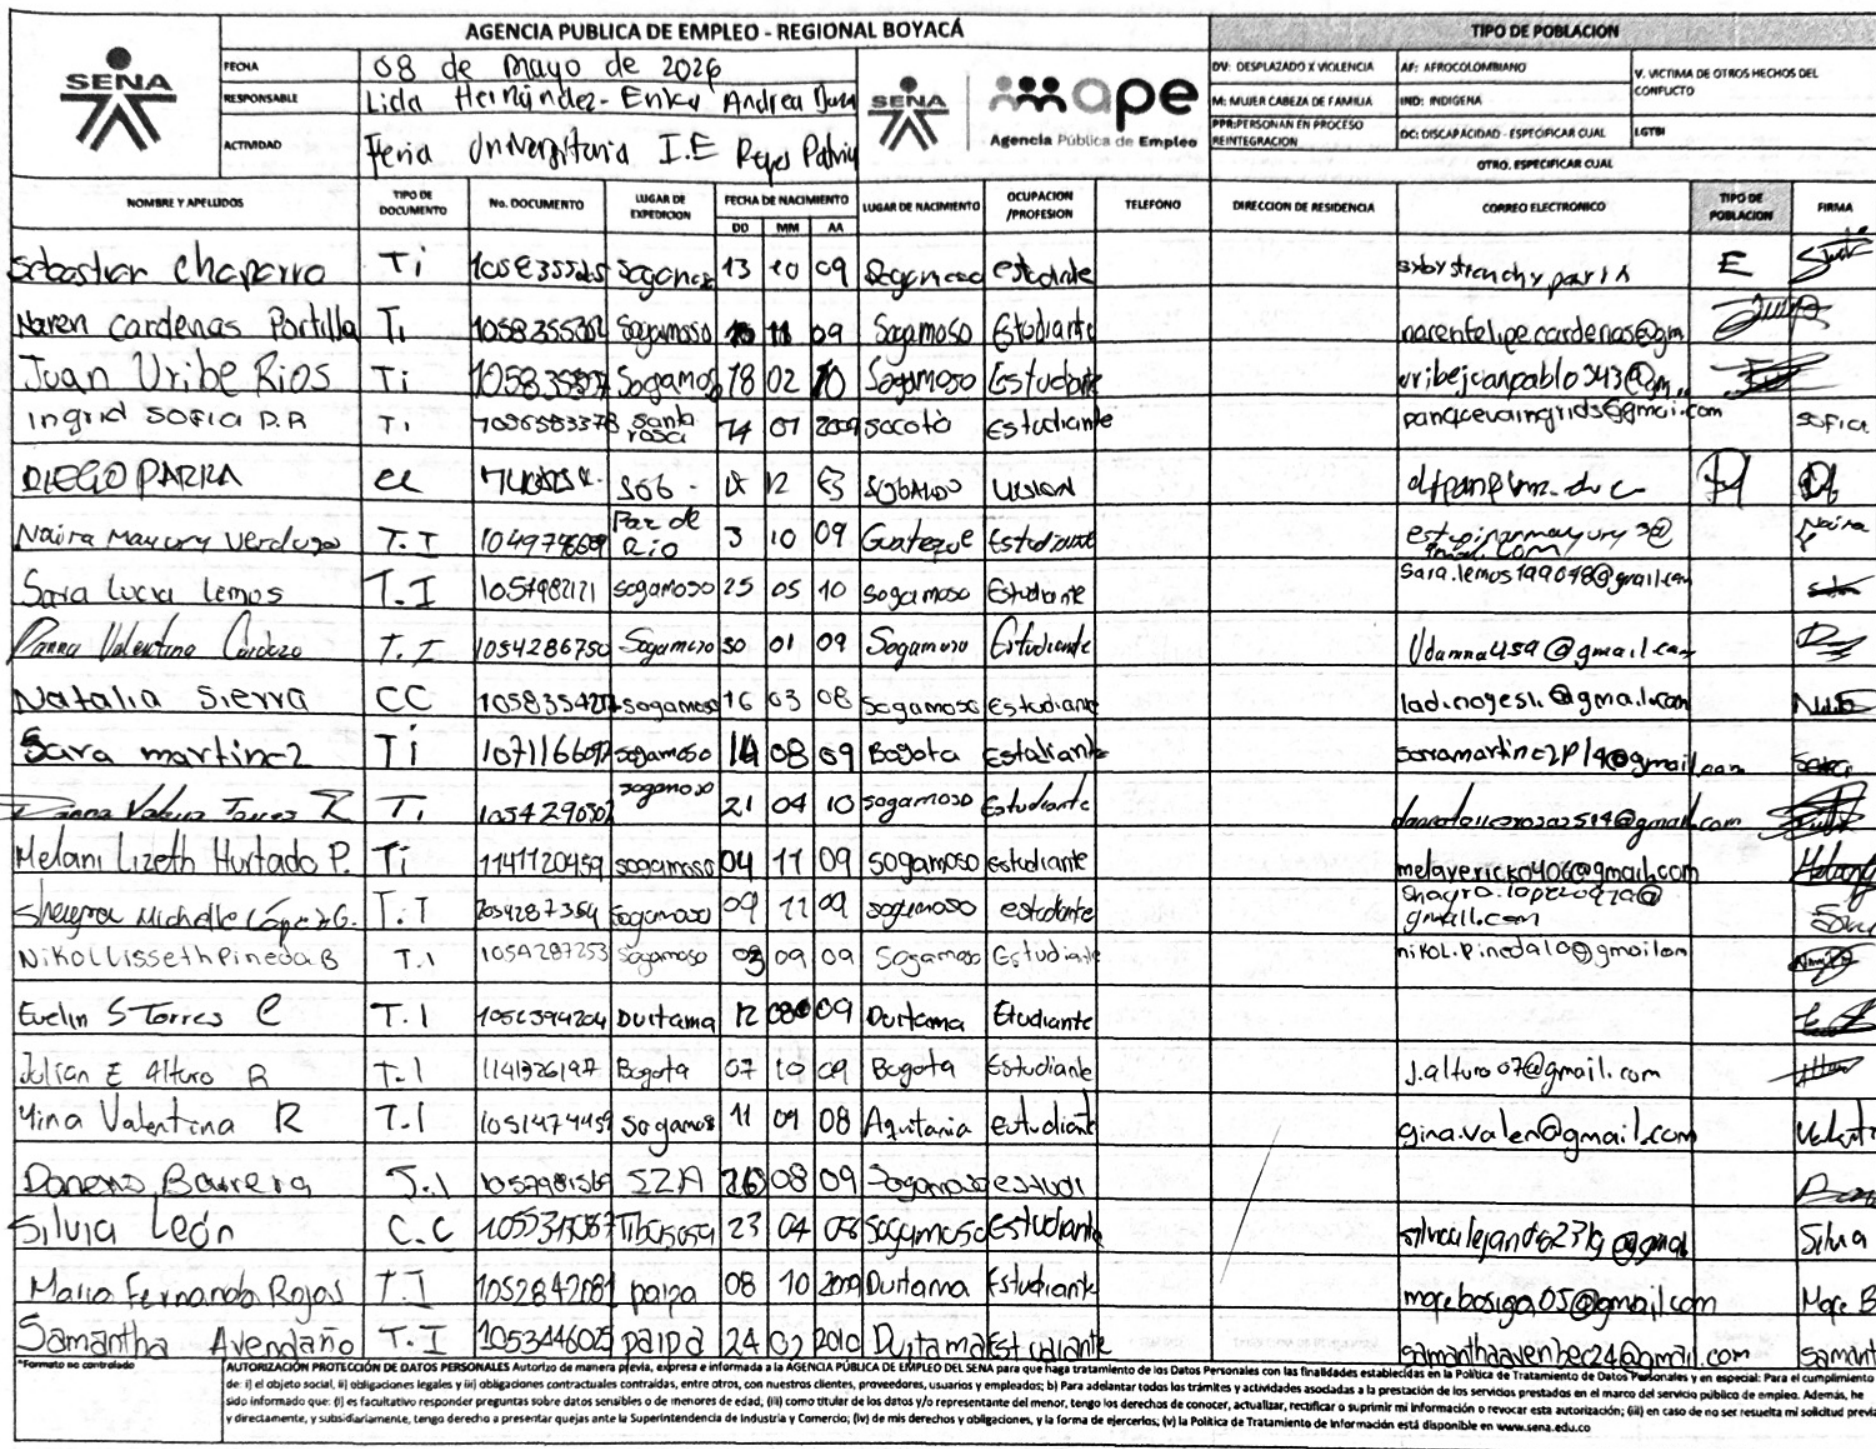 AGENCIA PUBLICA DE EMPLEO - REGIONAL BOYACÁ
TIPO DE POBLACION
SENA
FECHA 08 de Mayo de 2026
RESPONSABLE Licla Hernández - Erika Andrea
ACTIVIDAD Feria Universitaria I.E Reyes Patria
SENA
ape
Agencia Pública de Empleo
DV: DESPLAZADO X VIOLENCIA AF: AFROCOLOMBIANO V. VICTIMA DE OTROS HECHOS DEL CONFLICTO
M: MUJER CABEZA DE FAMILIA IND: INDIGENA
PPR:PERSONAN EN PROCESO REINTEGRACION DC: DISCAPACIDAD - ESPECIFICAR CUAL LGTBI
OTRO. ESPECIFICAR CUAL
NOMBRE Y APELLIDOS TIPO DE DOCUMENTO No. DOCUMENTO LUGAR DE EXPEDICION FECHA DE NACIMIENTO LUGAR DE NACIMIENTO OCUPACION /PROFESION TELEFONO DIRECCION DE RESIDENCIA CORREO ELECTRONICO TIPO DE POBLACION FIRMA
DD MM AA
Sebastian Chaparro Ti 13 10 09 estudiante E
Naren Cardenas Portilla Ti Sogamoso 11 09 Sogamoso Estudiante narenfelipe.cardenas@gm
Juan Uribe Rios Ti Sogamoso 18 02 10 Sogamoso Estudiante
Ingrid Sofia P.R Ti Santa rosa 14 01 2009 socotá Estudiante panquevaingrids@gmai.com Sofia
DIEGO PARRA cc 12
Naira Mayury Verdugo T.I Paz de Rio 3 10 09 Guateque Estudiante Naira
Sara Lucia Lemos T.I 1057982121 sogamoso 25 05 10 sogamoso Estudiante Sara.lemos199048@gmail.com
Danna Valentina Cardozo T.I 1054286750 Sogamoso 30 01 09 Sogamoso Estudiante Vdanna459@gmail.com
Natalia Sierra CC sogamoso 16 03 08 Sogamoso Estudiante
Sara martinez Ti sogamoso 14 08 09 Bogota Estudiante saramartinezp14@gmail.com
Danna Torres R Ti sogamoso 21 04 10 sogamoso Estudiante
Melani Lizeth Hurtado P. Ti 1141120459 sogamoso 04 11 09 sogamoso Estudiante melaverick0406@gmail.com
Michelle López G. T.I 1054287364 Sogamoso 09 11 09 sogamoso estudiante
Nikol Lisseth Pineda B T.I 1054287253 Sogamoso 03 09 09 Sogamoso Estudiante nikol.pineda10@gmailom
Evelin S Torres C T.I Duitama 12 08 09 Duitama Etudiante
Julian E Alturo R T.I Bogota 07 10 09 Bogota Estudiante J.alturo07@gmail.com
Yina Valentina R T.I 1051474459 Sogamos 11 09 08 Aquitania Estudiante gina.valen@gmail.com
Barrera 26 08 09 Sogamoso estudi
Silvia León C.C 23 04 08 Sogamoso Estudiante Silvia
Maria Fernanda Rojas T.I 1052842081 paipa 08 10 2009 Duitama Estudiante
Samantha Avendaño T.I 1053446025 paipa 24 02 2010 Duitama Estudiante samanthaavenbec24@gmail.com Samant
*Formato no controlado
AUTORIZACIÓN PROTECCIÓN DE DATOS PERSONALES Autorizo de manera previa, expresa e informada a la AGENCIA PÚBLICA DE EMPLEO DEL SENA para que haga tratamiento de los Datos Personales con las finalidades establecidas en la Política de Tratamiento de Datos Personales y en especial: Para el cumplimiento
de: i) el objeto social, ii) obligaciones legales y iii) obligaciones contractuales contraídas, entre otros, con nuestros clientes, proveedores, usuarios y empleados; b) Para adelantar todos los trámites y actividades asociadas a la prestación de los servicios prestados en el marco del servicio público de empleo. Además, he
sido informado que: (i) es facultativo responder preguntas sobre datos sensibles o de menores de edad, (ii) como titular de los datos y/o representante del menor, tengo los derechos de conocer, actualizar, rectificar o suprimir mi información o revocar esta autorización; (iii) en caso de no ser resuelta mi solicitud previa
y directamente, y subsidiariamente, tengo derecho a presentar quejas ante la Superintendencia de Industria y Comercio; (iv) de mis derechos y obligaciones, y la forma de ejercerlos; (v) la Política de Tratamiento de Información está disponible en www.sena.edu.co